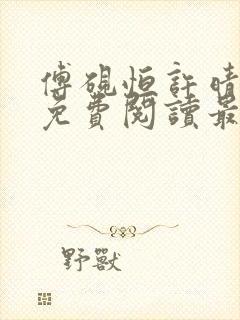 傅硯恒許晴
免費閱讀最
野獸